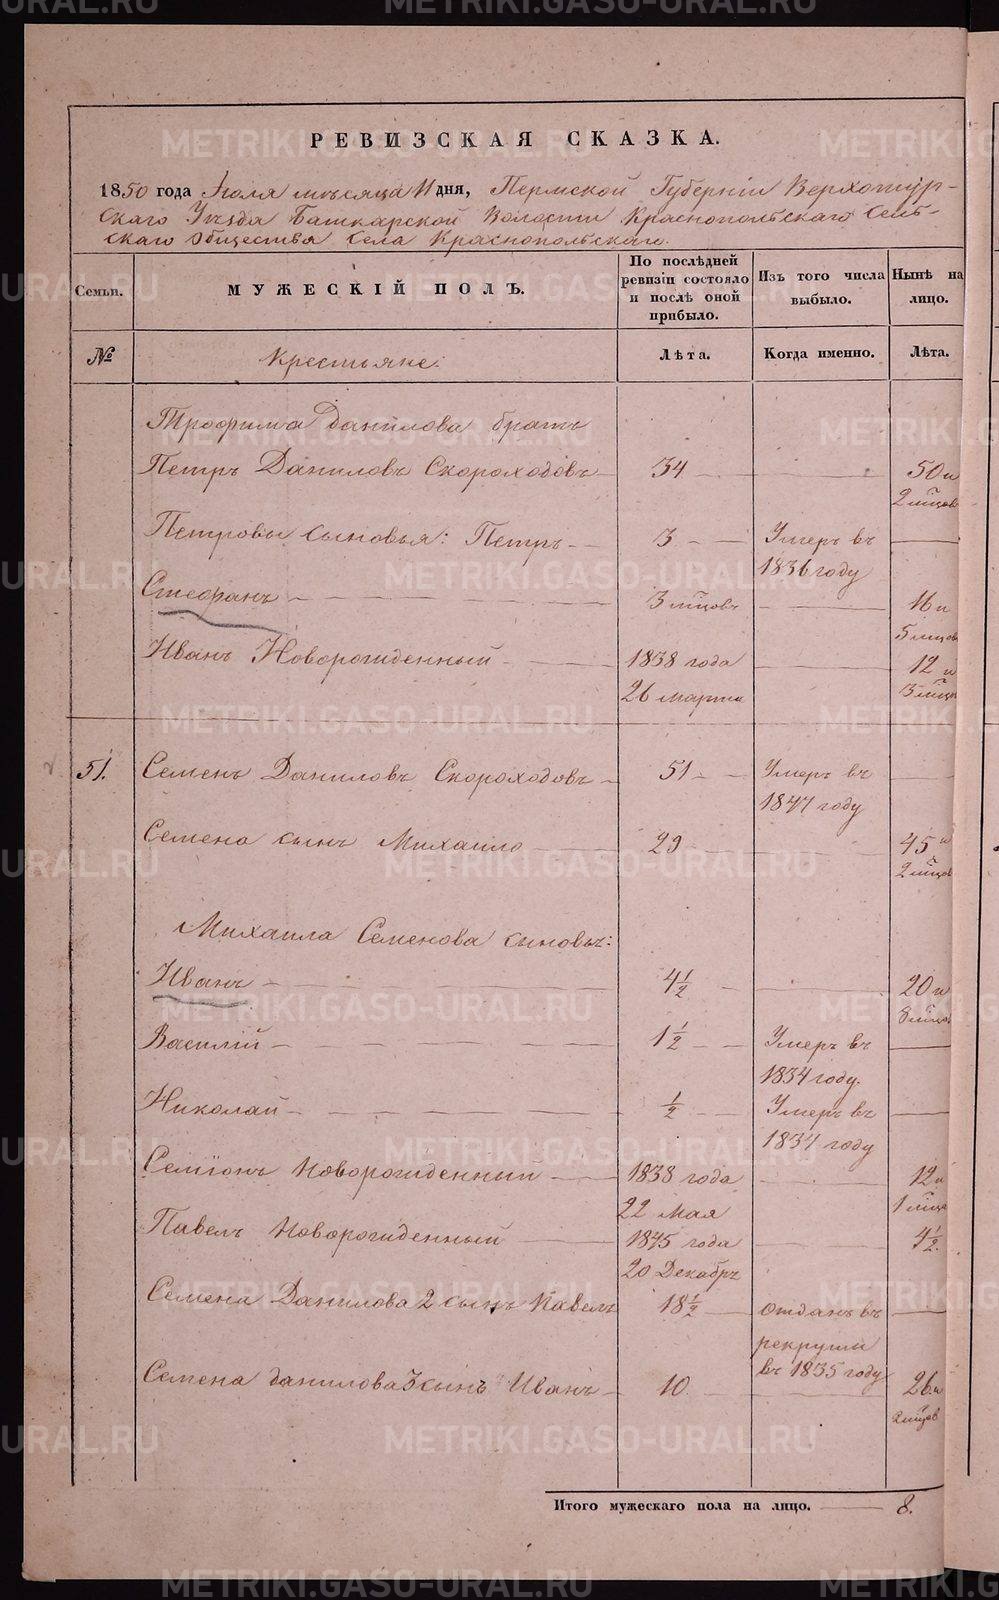 РЕВИЗСКАЯ СКАЗКА.
1850 года Июля мѣсяца 11 дня, Пермской Губерніи Верхотур-
скаго Уѣзда Башкарской Волости Краснопольскаго Сель-
скаго Общества Села Краснопольскаго.
Семьи. МУЖЕСКІЙ ПОЛЪ. По послѣдней ревизіи состояло и послѣ оной прибыло. Изъ того числа выбыло. Нынѣ на лицо.
№ Крестьяне: Лѣта. Когда именно. Лѣта.
Трофима Данилова братъ
Петръ Даниловъ Скороходовъ 34 50 и
2 мѣцов
Петровы сыновья: Петръ 3 Умеръ въ
1836 году
Стефанъ 3 мѣцовъ 16 и
5 мѣцов
Иванъ Новорожденный 1838 года 12 и
26 марта 3 мѣця
51. Семенъ Даниловъ Скороходовъ 51 Умеръ въ
1847 году
Семена сынъ Михаило 29 45 и
2 мѣцов
Михаила Семенова сыновья:
Иванъ 4 1/2 20 и
8 мѣцов
Василій 1 1/2 Умеръ въ
1834 году.
Николай 1/2 Умеръ въ
1834 году
Семіонъ Новорожденный 1838 года 12 и
22 Мая 1 мѣця
Павелъ Новорожденный 1845 года 4 1/2.
20 Декабръ
Семена Данилова 2 сынъ Павелъ 18 1/2 отданъ въ
рекруты
въ 1835 году
Семена Данилова 3 сынъ Иванъ 10 26 и
2 мѣцов
Итого мужескаго пола на лицо. 8.
METRIKI.GASO-URAL.RU